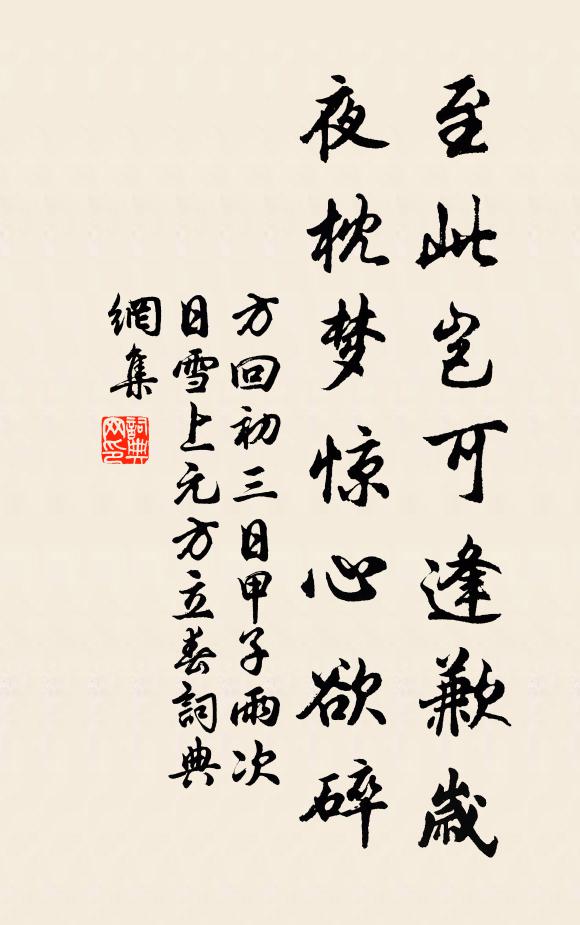 至此岂可逢歉歲
夜枕梦惊心欲碎
方回初三日甲子雨次
日雪上元方立春詞典
網集
詞典网印